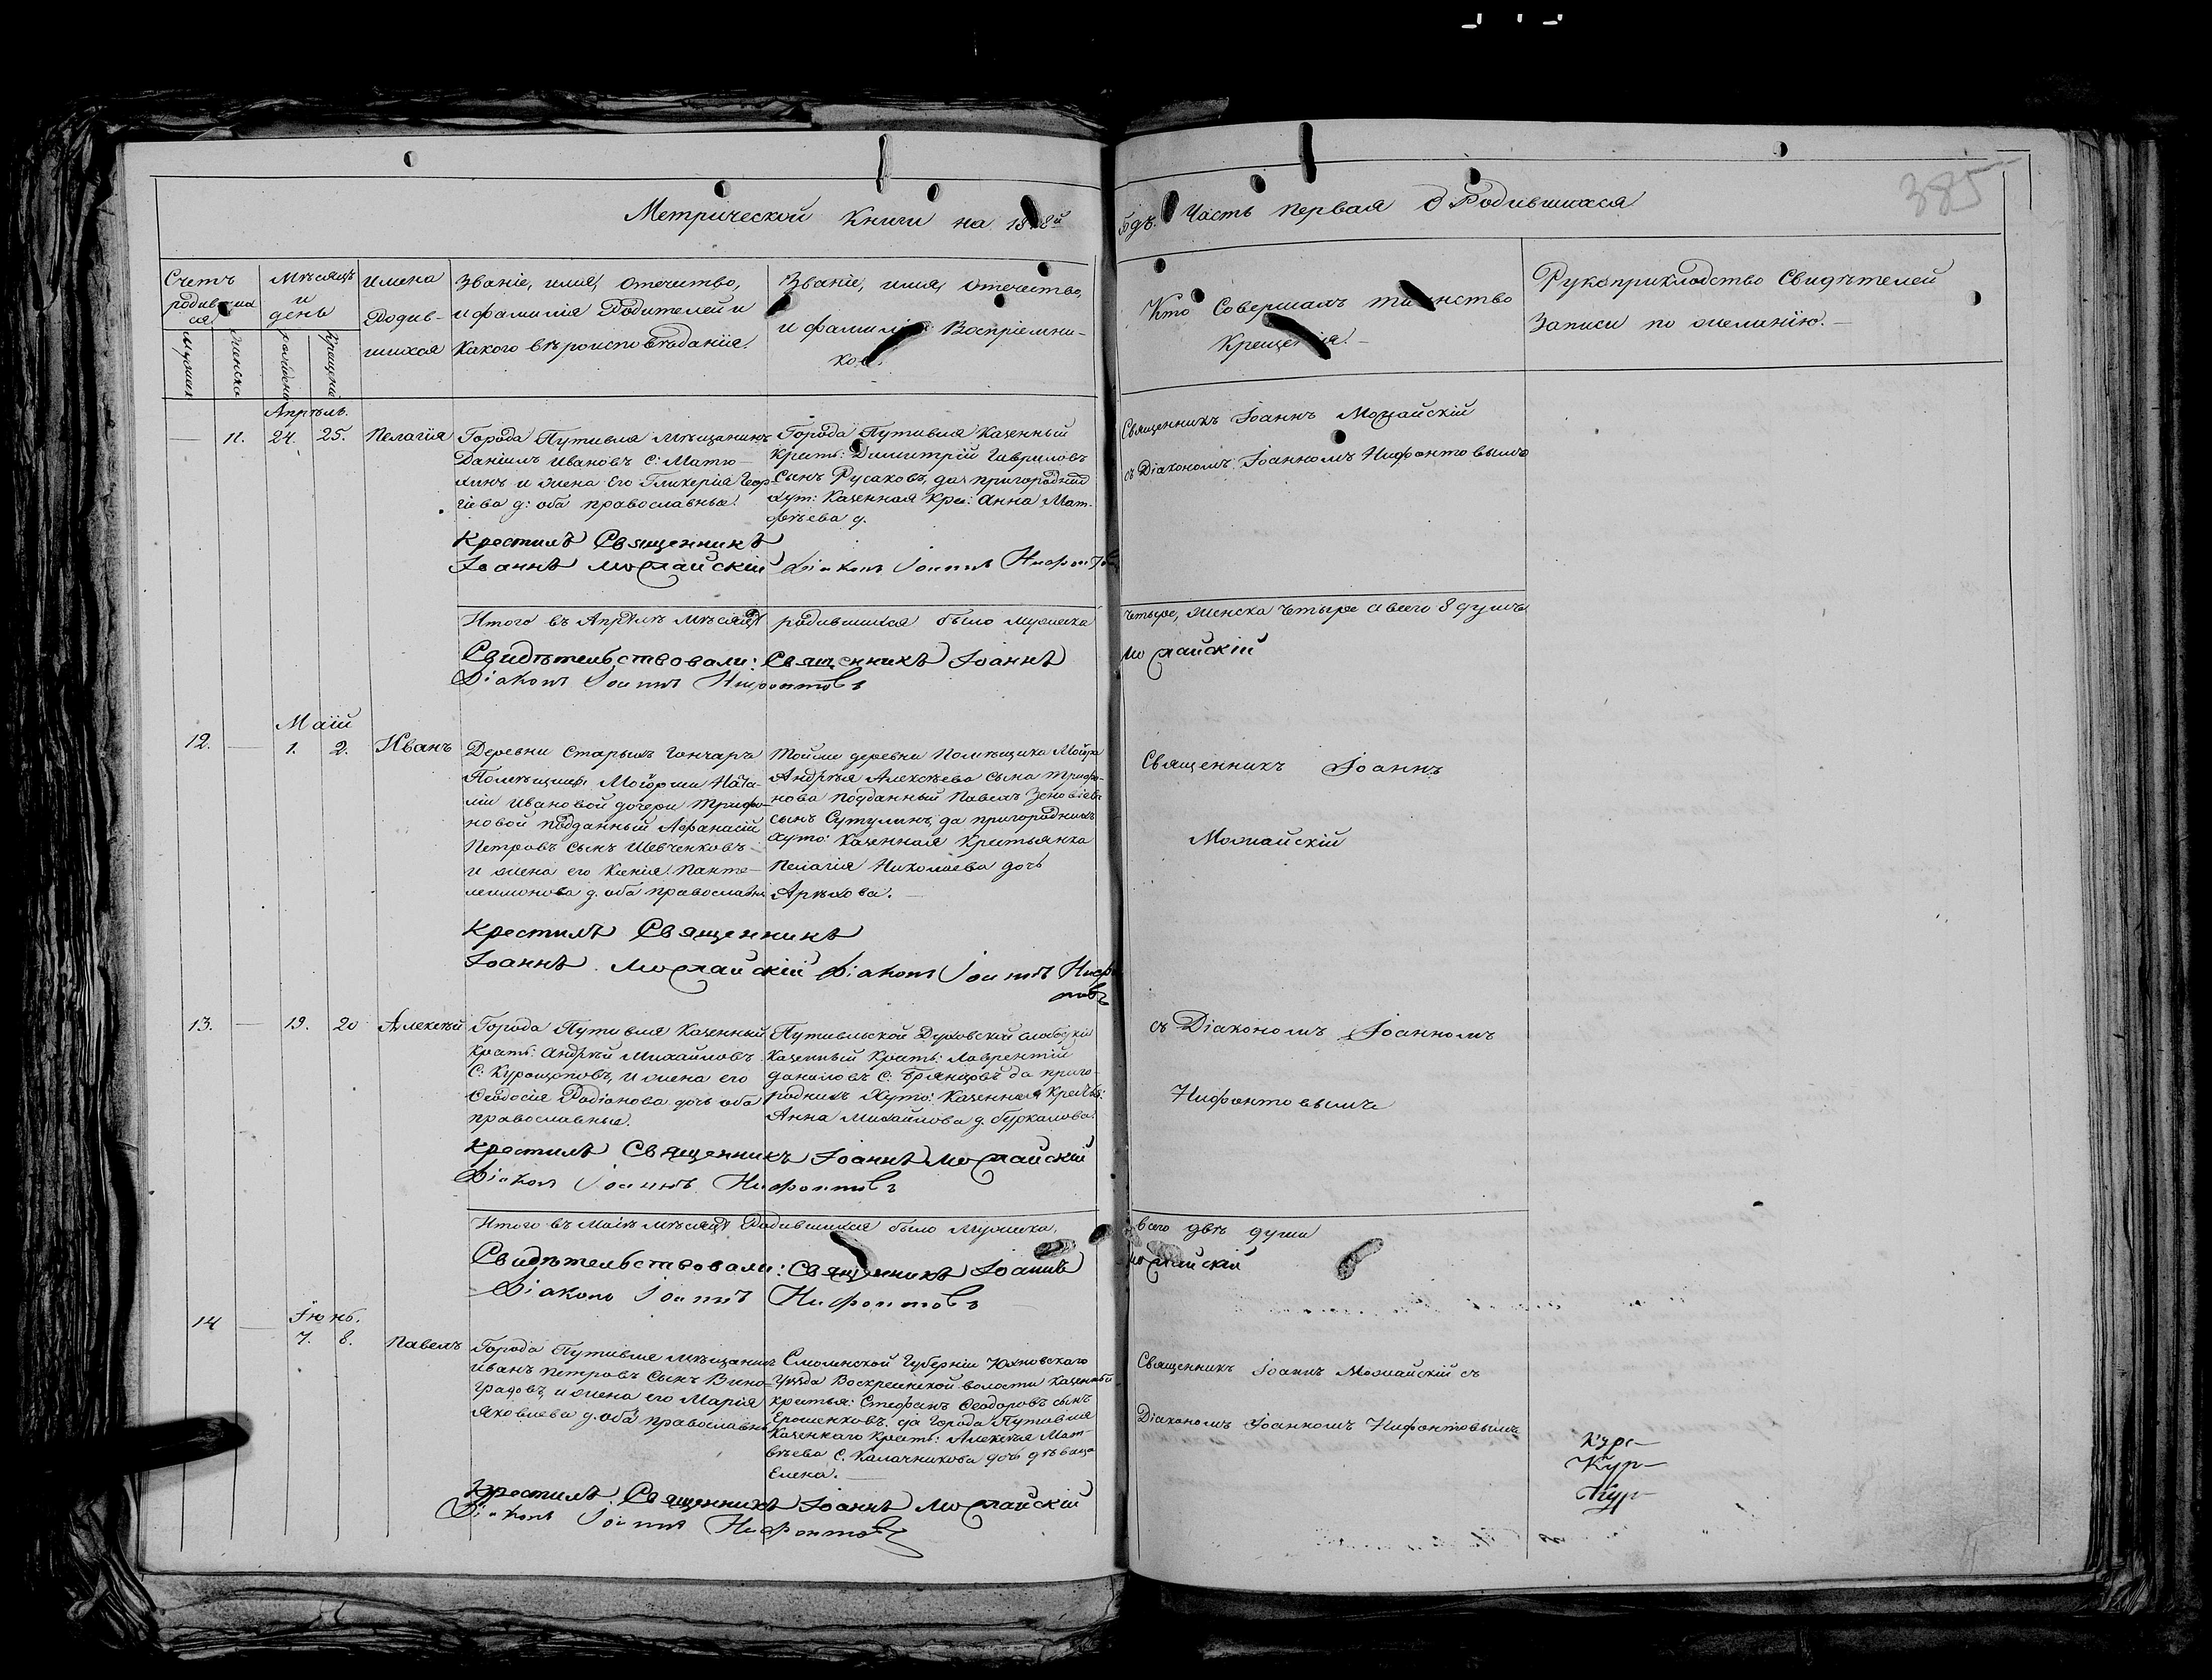 385
Метрической Книги на 18 8й
Часть первая о Родившихся
Счетъ родившихся
Мужеска
Женска
Мѣсяцъ и день
рожденія
Крещенія
Имена Родившихся
Званіе, имя, отечество,
и фамилія Родителей и
Какого вѣроисповѣданія.
Званіе, имя, отечество,
и фамилія Воспріемни-
ковъ.
Кто Совершалъ таинство
Крещенія.
Рукоприкладство Свидѣтелей
Записи по желанію.
Апрѣль.
11. 24. 25. Пелагія
Города Путивля Мѣщанинъ
Даніилъ Ивановъ С: Матю-
хинъ и жена его Гликерія Геор-
гіева д: оба православные.
Города Путивля Казенный
Крать: Димитрій Гавриловъ
Сынъ Русаковъ, да пригородних
хут: Казенная Кре: Анна Мат-
фѣева д.
Священникъ Іоаннъ Можайскій
съ Діакономъ Іоанномъ Нифонтовымъ
Крестилъ Священникъ
Іоаннъ Можайскій Діаконъ Іоаннъ Нифонтовъ
Итого въ Апрѣлѣ мѣсяцѣ родившихся было мужеска четыре, женска четыре а всего 8 душъ
Свидѣтельствовали: Священникъ Іоаннъ Можайскій
Діаконъ Іоаннъ Нифонтовъ
Маій
12. 1. 2. Иванъ
Деревни Старыхъ Гончаръ
Помѣщицы Маіорши Ната-
ліи Ивановой дочери Трифо-
новой подданный Афанасій
Петровъ сынъ Шевченковъ
и жена его Ксенія Панте-
леимонова д. оба православны
Тойже деревни Помѣщика Маіора
Андрѣя Алексѣева сына Трифо-
нова подданный Павелъ Зеновіевъ
сынъ Сутулинъ, да пригороднихъ
хуто: Казенная Крестьянка
Пелагія Николаева дочь
Арѣхова.
Священникъ Іоаннъ
Можайскій
Крестилъ Священникъ
Іоаннъ Можайскій Діаконъ Іоаннъ Нифонтовъ
13. 19. 20 Алексѣй
Города Путивля Казенный
Крать: Андрѣй Михайловъ
С: Курощоповъ, и жена его
Ѳеодосія Радіонова дочь оба
православные.
Путивльской Духовской слободки
Казенный Крать: Лаврентій
Даниловъ С: Брянцовъ да приго-
роднихъ Хуто: Казенная Крать:
Анна Михайлова д. Буркалова.
съ Діакономъ Іоанномъ
Нифонтовымъ
Крестилъ Священникъ Іоаннъ Можайскій
Діаконъ Іоаннъ Нифонтовъ
Итого въ Маіѣ мѣсяцѣ Родившихся было Мужеска, всего двѣ души
Свидѣтельствовали: Священникъ Іоаннъ Можайскій
Діаконъ Іоаннъ Нифонтовъ
Іюнь.
14 7. 8. Павелъ
Города Путивля мѣщанинъ
Иванъ Петровъ Сынъ Вино-
градовъ, и жена его Марія
Яковлева д. оба православны
Смоленской Губерніи Юхновскаго
уѣзда Воскресенской волости казенный
кратья: Стефанъ Ѳеодоровъ сынъ
Ерошенковъ. да Города Путивля
Казенкаго Крать: Алексѣя Мат-
вѣева С. Калачникова дочь дѣвица
Елена.
Священникъ Іоаннъ Можайскій съ
Діакономъ Іоанномъ Нифонтовымъ
Крестилъ Священникъ Іоаннъ Можайскій
Діаконъ Іоаннъ Нифонтовъ